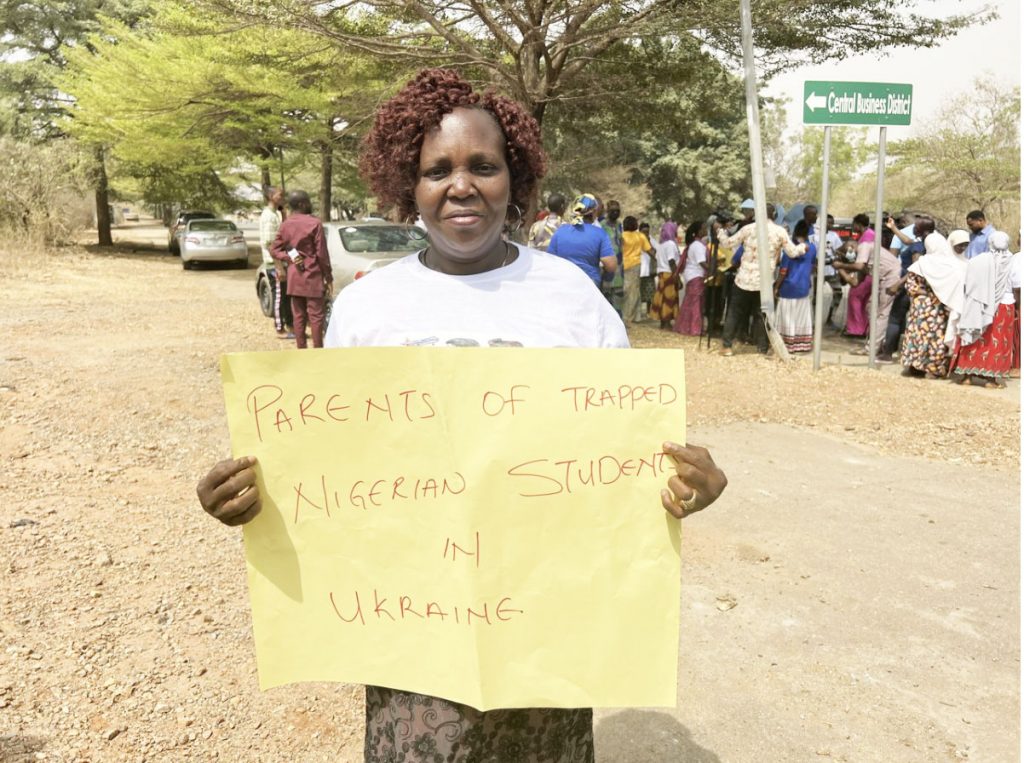 Central Business District
PARENTS OF TRAPPED
NIGERIAN STUDENTS
IN
UKRAINE